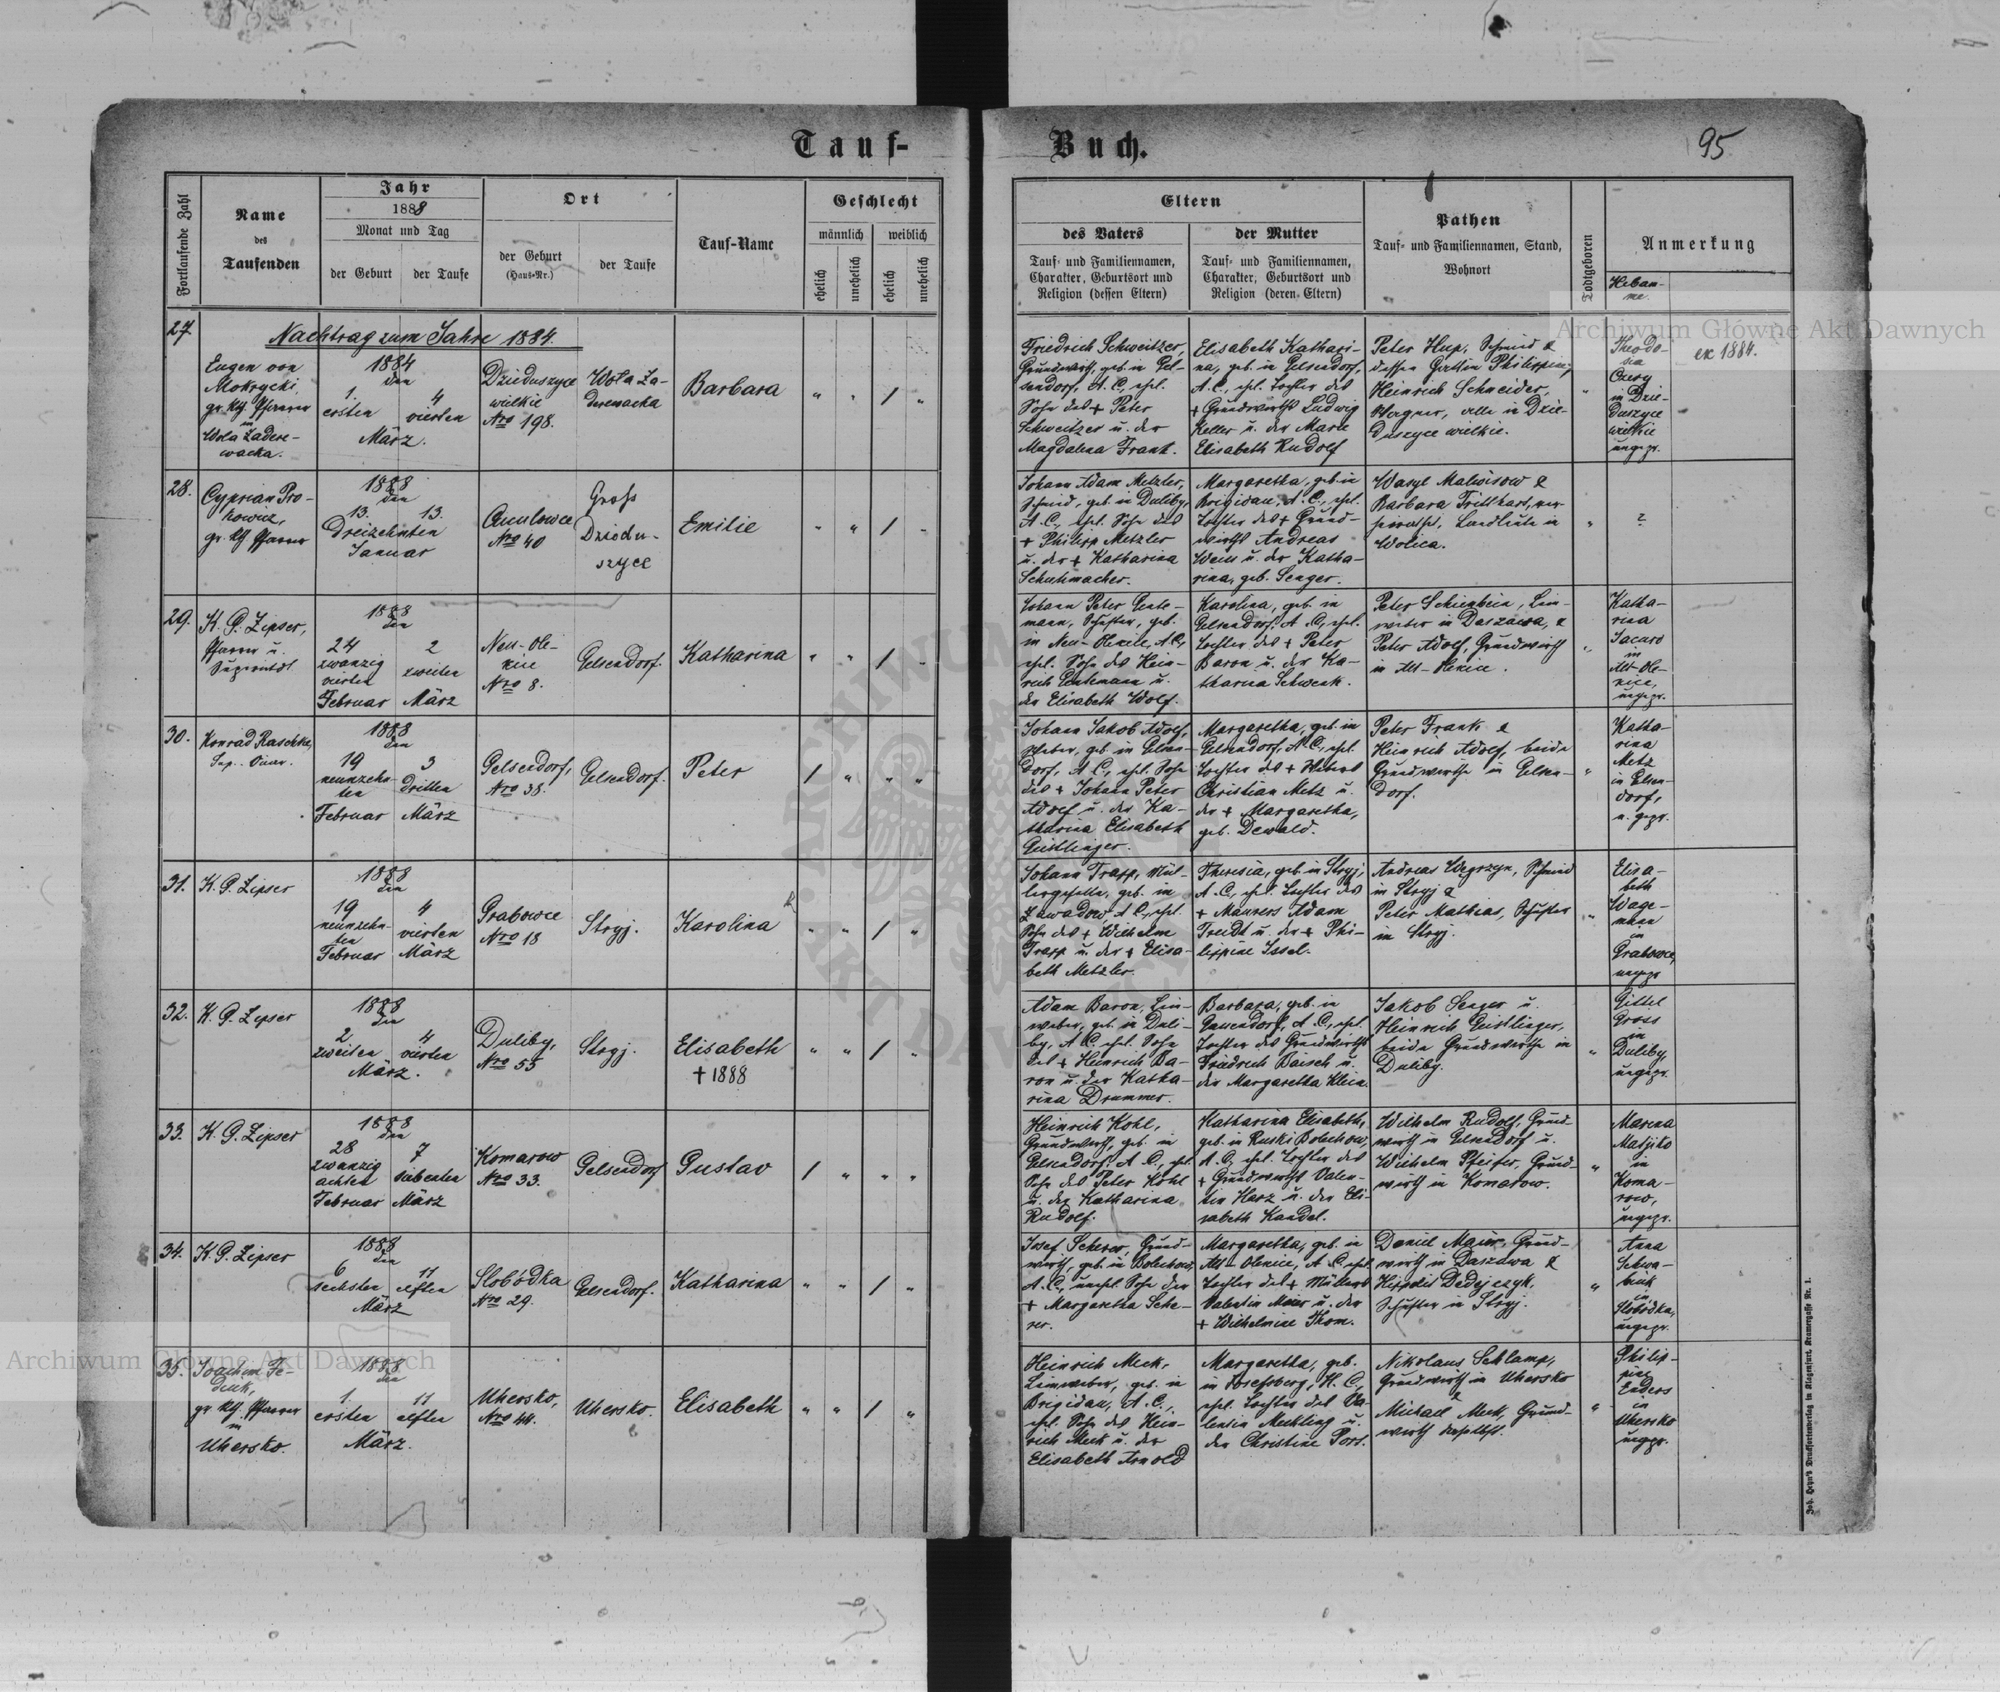 Tauf-
Buch.
95
Fortlaufende Zahl
Name
des
Taufenden
Jahr
1888
Monat und Tag
der Geburt
der Taufe
Ort
der Geburt
(Haus-Nr.)
der Taufe
Tauf-Name
Geschlecht
männlich
weiblich
ehelich
unehelich
ehelich
unehelich
Eltern
des Vaters
Tauf- und Familiennamen,
Charakter, Geburtsort und
Religion (dessen Eltern)
der Mutter
Tauf- und Familiennamen,
Charakter, Geburtsort und
Religion (deren Eltern)
Pathen
Tauf- und Familiennamen, Stand,
Wohnort
Todtgeboren
Anmerkung
Hebam-
me.
27.
Nachtrag zum Jahre 1884.
Eugen von
Mokrycki,
gr. kth. Pfarrer
in
Wola Zadere-
wacka.
1884
den
1.
ersten
4
vierten
März.
Dzieduszyce
wielkie
Nro 198.
Wola Za-
derewacka
Barbara
" " / "
Friedrich Schweitzer,
Grundwirth, geb. in Gel-
sendorf, A. C., ehel.
Sohn des + Peter
Schweitzer u. der
Magdalena Frank.
Elisabeth Kathari-
na, geb. in Gelsendorf,
A. C., ehel. Tochter des
+ Grundwirths Ludwig
Keller u. der Marie
Elisabeth Rudolf
Peter Hup, Schmied &
dessen Gattin Philippine,
Heinrich Schneider,
Wagner, alle in Dzie-
duszyce wielkie.
"
Theodo-
sia
in Dzie-
duszyce
wielkie
ungepr.
ex 1884.
28.
Cyprian Pro-
kowicz,
gr. kth Pfarrer
1888
den
13. 13.
Dreizehnten
Januar
Nro 40
Gross
Dziedu-
szyce
Emilie
" " / "
Johann Adam Metzler,
Schmied, geb. in Duliby,
A. C., ehel. Sohn des
+ Philipp Metzler
u. der + Katharina
Schuhmacher.
Margaretha, geb. in
Brigidau, A. C., ehel.
Tochter des + Grund-
wirths Andreas
Weiss u. der Katha-
rina, geb. Senger.
Wasyl Maliwisow &
Barbara Trittkart, ver-
heirathet, Landleute in
Wolica.
"
?
29.
K. G. Zipser,
Pfarrer u.
Superintdt.
1888
den
24
zwanzig
vierten
Februar
2
zweiten
März
Neu-Ole-
xice
Nro 8.
Gelsendorf.
Katharina
" " / "
Johann Peter Gente-
mann, Schuster, geb.
in Neu-Olexice, A. C.,
ehel. Sohn des Hein-
rich Gentemann u.
der Elisabeth Wolf.
Karolina, geb. in
Gelsendorf, A. C., ehel.
Tochter des + Peter
Baron u. der Ka-
tharina Schwenk.
Peter Schienbein, Lein-
weber in Daszawa, &
Peter Adolf, Grundwirth
in Alt-Olexice.
"
Katha-
rina
in
Alt-Ole-
xice,
ungepr.
30.
Konrad Raschke,
Sup.-Vicar.
1888
den
19
neunzehn-
ten
Februar
3
dritten
März
Gelsendorf,
Nro 38.
Gelsendorf.
Peter
/ " " "
Johann Jakob Adolf,
Weber, geb. in Gelsen-
dorf, A. C., ehel. Sohn
des + Johann Peter
Adolf u. der Ka-
tharina Elisabeth
Geistlinger.
Margaretha, geb. in
Gelsendorf, A. C., ehel.
Tochter des + Webers
Christian Metz u.
der + Margaretha,
geb. Dewald.
Peter Frank &
Heinrich Adolf, beide
Grundwirthe in Gelsen-
dorf.
"
Katha-
rina
Metz
in Gelsen-
dorf,
u. gepr.
31.
K. G. Zipser
1888
den
19
neunzehn-
ten
Februar
4
vierten
März
Grabowce
Nro 18
Stryj.
Karolina
" " / "
Johann Trapp, Mül-
lergeselle, geb. in
Zawadow, A. C., ehel.
Sohn des + Wilhelm
Trapp u. der + Elisa-
beth Metzler.
Theresia, geb. in Stryj,
A. C., ehel. Tochter des
+ Maurers Adam
Treidt u. der + Phi-
lippine Issel.
Andreas Wegrzyn, Schmied
in Stryj &
Peter Mathias, Schuster
in Stryj.
"
Elisa-
beth
Wage-
mann
in
Grabowce,
ungepr
32.
K. G. Zipser
1888
den
2
zweiten
4
vierten
März.
Duliby,
Nro 55
Stryj.
Elisabeth
+ 1888
" " / "
Adam Baron, Lein-
weber, geb. in Duli-
by, A. C., ehel. Sohn
des + Heinrich Ba-
ron u. der Katha-
rina Drummer.
Barbara, geb. in
Gassendorf, A. C., ehel.
Tochter des Grundwirths
Friedrich Baisch u.
der Margaretha Klein.
Jakob Senger u.
Heinrich Geistlinger,
beide Grundwirthe in
Duliby.
"
Gittel
Gross
in
Duliby,
ungepr.
33.
K. G. Zipser
1888
den
28
zwanzig
achten
Februar
7
siebenten
März
Komarow
Nro 33.
Gelsendorf
Gustav
/ " " "
Heinrich Kohl,
Grundwirth, geb. in
Gelsendorf, A. C., ehel.
Sohn des Peter Kohl
u. der Katharina
Rudolf.
Katharina Elisabeth,
geb. in Ruski Bolechow,
A. C., ehel. Tochter des
+ Grundwirths Valen-
tin Harz u. der Eli-
sabeth Kandel.
Wilhelm Rudolf, Grund-
wirth in Gelsendorf u.
Wilhelm Pfeifer, Grund-
wirth in Komarow.
"
Marina
Matijko
in
Koma-
row,
ungepr.
34.
K. G. Zipser
1888
den
6
sechsten
11
elften
März
Slobódka
Nro 29.
Gelsendorf.
Katharina
" " / "
Josef Scherer, Grund-
wirth, geb. in Bolechow,
A. C., unehl. Sohn der
+ Margaretha Sche-
rer.
Margaretha, geb. in
Alt-Olexice, A. C., ehel
Tochter des + Müllers
Valentin Maier u. der
+ Wilhelmine Thom.
Daniel Maier, Grund-
wirth in Daszawa &
Hippolit Dedejczyk,
Schuster in Stryj.
"
Anna
Schwa-
biuk
in
Slobódka,
ungepr.
35.
Joachim Fe-
diuk,
gr. kth. Pfarrer
in
Uhersko.
1888
den
1.
ersten
11
elften
März.
Uhersko,
Nro 44.
Uhersko.
Elisabeth
" " / "
Heinrich Meck,
Leinweber, geb. in
Brigidau, A. C.,
ehel. Sohn des Hein-
rich Meck u. der
Elisabeth Arnold
Margaretha, geb.
in Josefsberg, H. C.,
ehel. Tochter des Va-
lentin Mechling u.
der Christine Port.
Nikolaus Schlamp,
Grundwirth in Uhersko
&
Michael Meck, Grund-
wirth daselbst.
"
Philip-
pine
Enders
in
Uhersko
ungepr.
Joh. Heyn's Drucksortenverlag in Klagenfurt, Kramergasse Nr. 1.
Archiwum Główne Akt Dawnych
Archiwum Główne Akt Dawnych